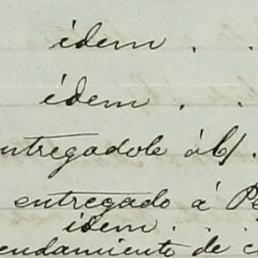 idem . .
idem . .
entregadole á
entregado á
idem . . .
endamiento de